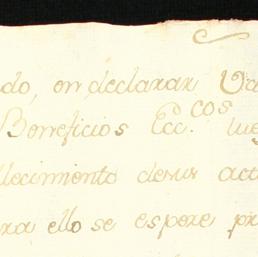 do, en declarar Va
Beneficios Ecc.cos lue
llecimiento desus act
ra ello se espere pr